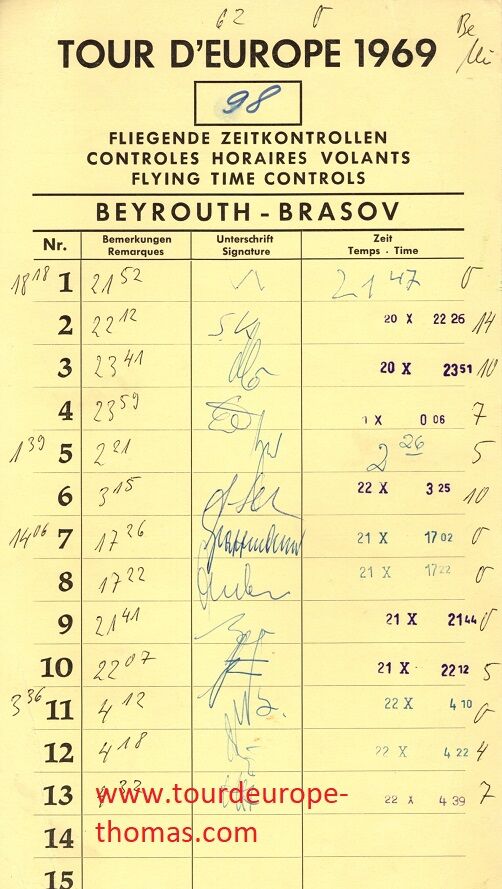 62 0 Be
TOUR D'EUROPE 1969
98
FLIEGENDE ZEITKONTROLLEN
CONTROLES HORAIRES VOLANTS
FLYING TIME CONTROLS
BEYROUTH - BRASOV
Nr. Bemerkungen Remarques Unterschrift Signature Zeit Temps - Time
18 18 1 21 52 21 47 0
2 22 12 20 X 22 26 14
3 23 41 20 X 23 51 10
4 23 59 1 X 0 06 7
1 39 5 2 21 2 26 5
6 3 15 22 X 3 25 10
14 06 7 17 26 21 X 17 02 0
8 17 22 21 X 17 22 0
9 21 41 21 X 21 44 0
10 22 07 21 X 22 12 5
3 36 11 4 12 22 X 4 10 0
12 4 18 22 X 4 22 4
13 4 32 22 X 4 39 7
www.tourdeurope-
thomas.com
14
15